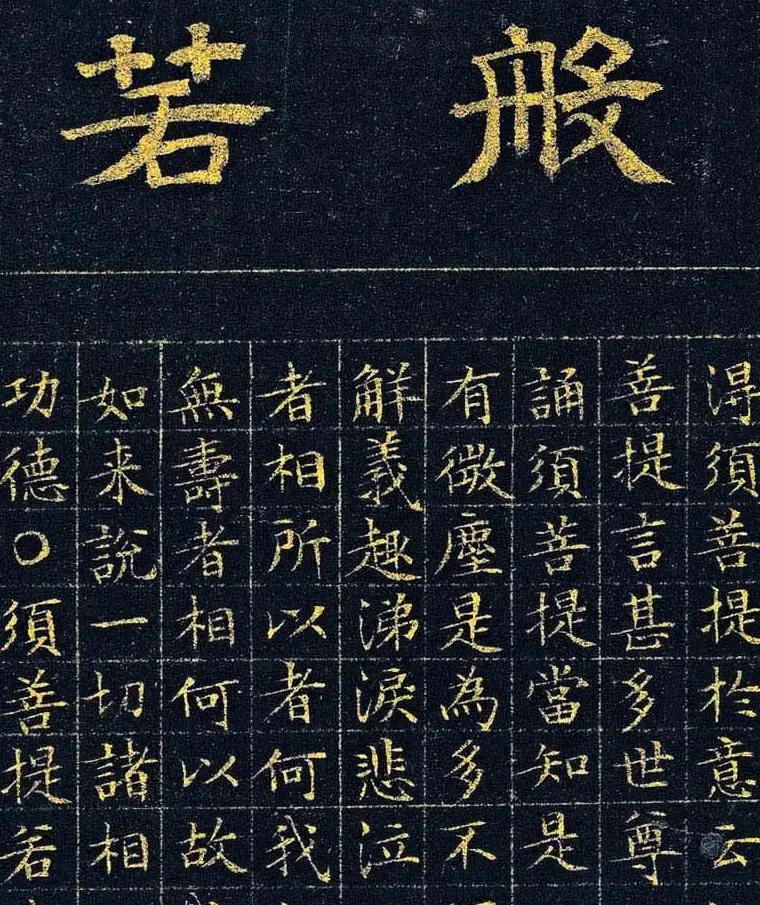 般若
淂須菩提於意云
菩提言甚多世尊
誦須菩提當知是
有微塵是為多不
解義趣涕淚悲泣
者相所以者何我
無壽者相何以故
如来說一切諸相
功德○須菩提若